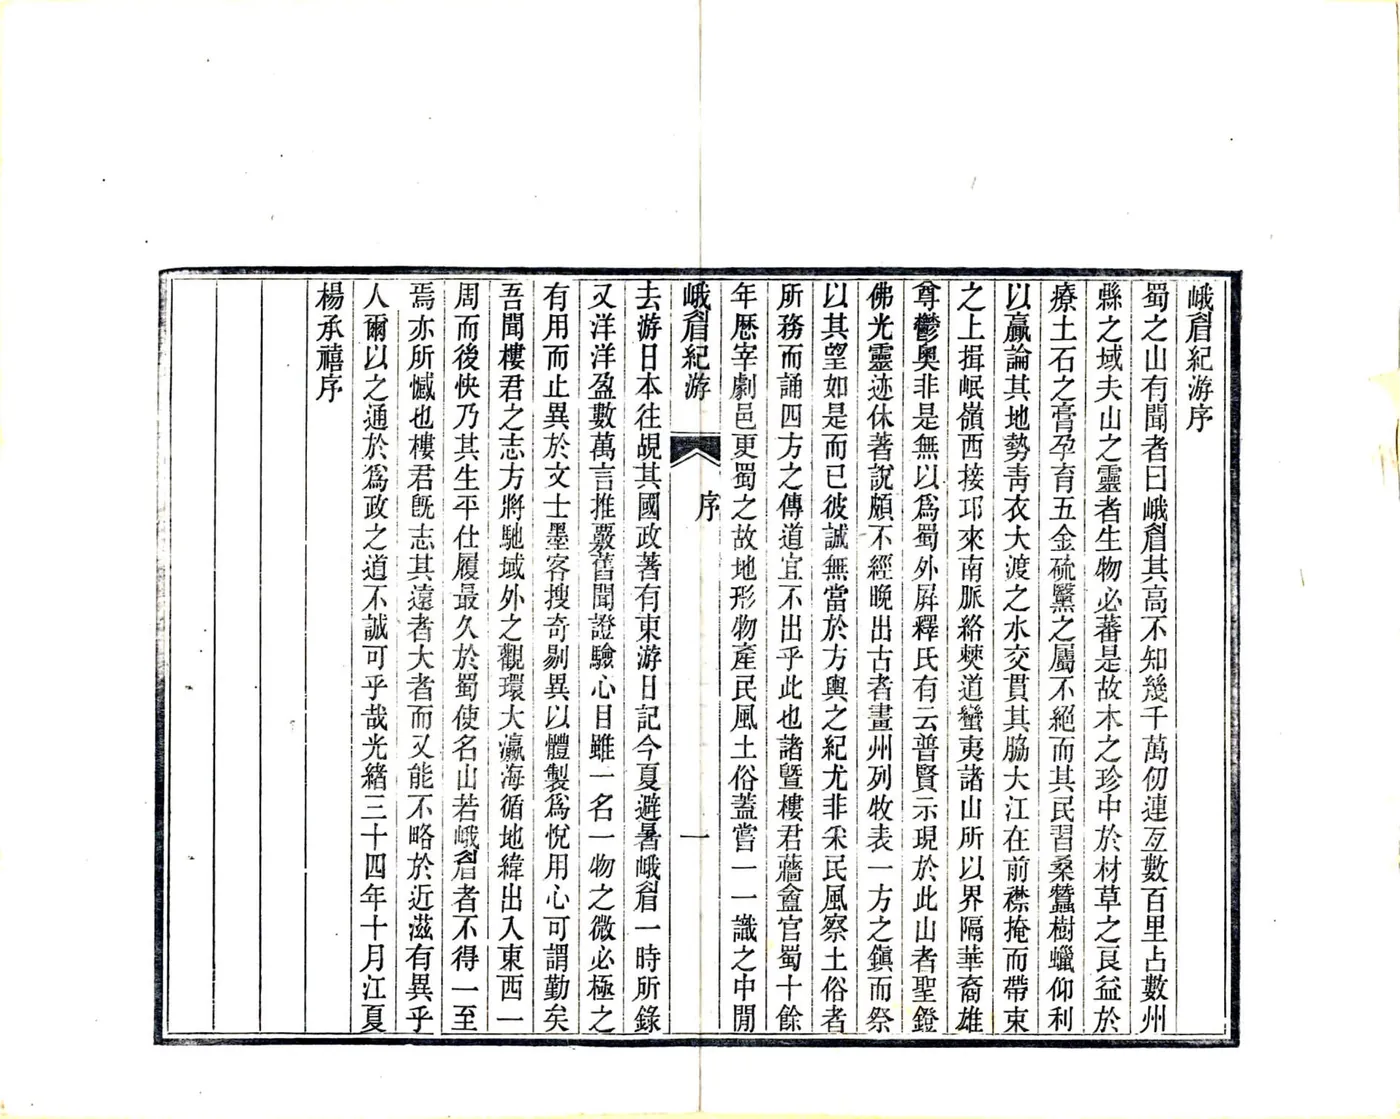 峨眉紀游序
蜀之山有聞者曰峨眉其高不知幾千萬仞連亙數百里占數州
縣之域夫山之靈者生物必蕃是故木之珍中於材草之良益於
療土石之膏孕育五金硫黳之屬不絕而其民習桑蠶樹蠟仰利
以贏論其地勢靑衣大渡之水交貫其脇大江在前襟掩而帶束
之上揖岷嶺西接邛來南脈絡僰道蠻夷諸山所以界隔華裔雄
尊鬱奥非是無以爲蜀外屛釋氏有云普賢示現於此山者聖鐙
佛光靈迹休著說頗不經晚出古者畫州列牧表一方之鎭而祭
以其望如是而已彼誠無當於方輿之紀尤非釆民風察土俗者
所務而誦四方之傳道宜不出乎此也諸曁樓君藴盦官蜀十餘
年歷宰劇邑更蜀之故地形物產民風土俗蓋嘗一一識之中閒
峨眉紀游
序
一
去游日本往覘其國政著有東游日記今夏避暑峨眉一時所錄
又洋洋盈數萬言推覈舊聞證驗心目雖一名一物之微必極之
有用而止異於文士墨客搜奇剔異以體製爲悅用心可謂勤矣
吾聞樓君之志方將馳域外之觀環大瀛海循地緯出入東西一
周而後快乃其生平仕履最久於蜀使名山若峨眉者不得一至
焉亦所憾也樓君旣志其遠者大者而又能不略於近滋有異乎
人爾以之通於爲政之道不誠可乎哉光緒三十四年十月江夏
楊承禧序